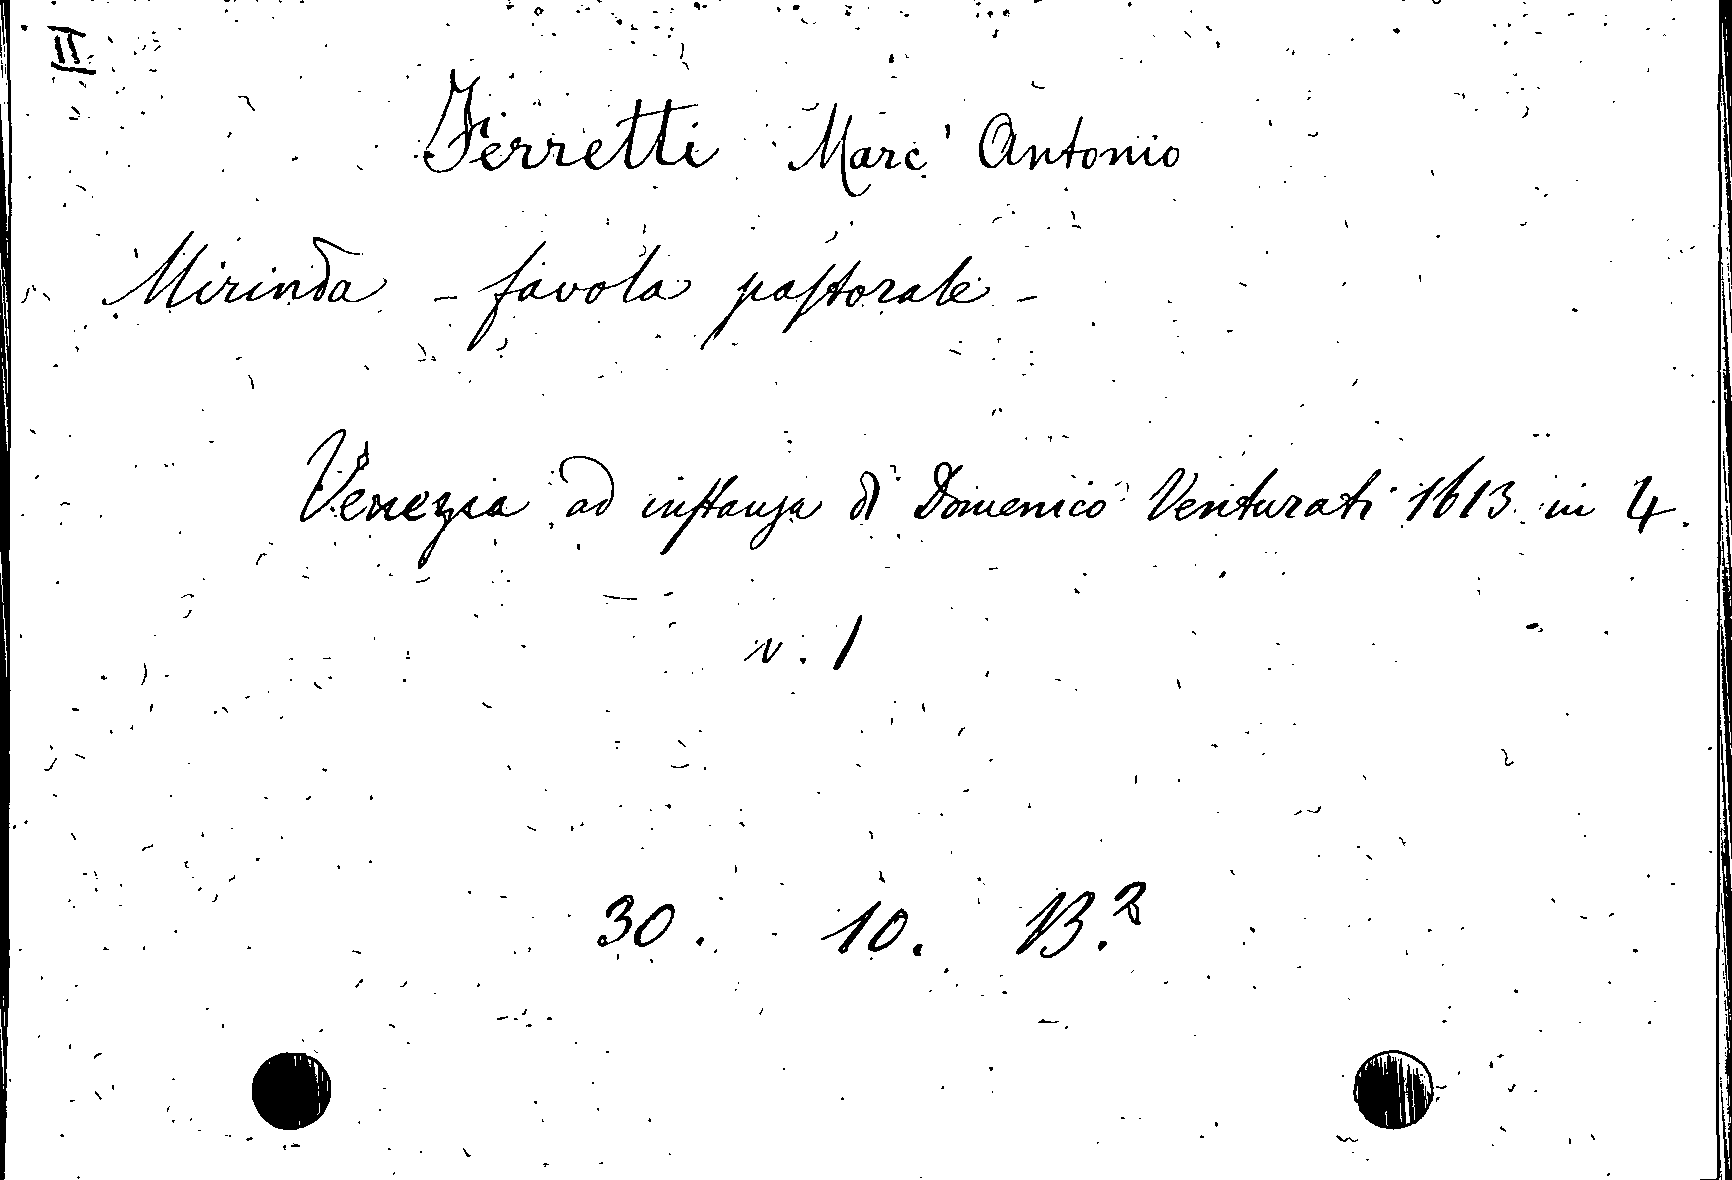 II
Ferretti Marc' Antonio
Mirinda - favola pastorale -
Venezia ad instanza di Domenico Venturati 1613 in 4.
v. 1
30. 10. B.2